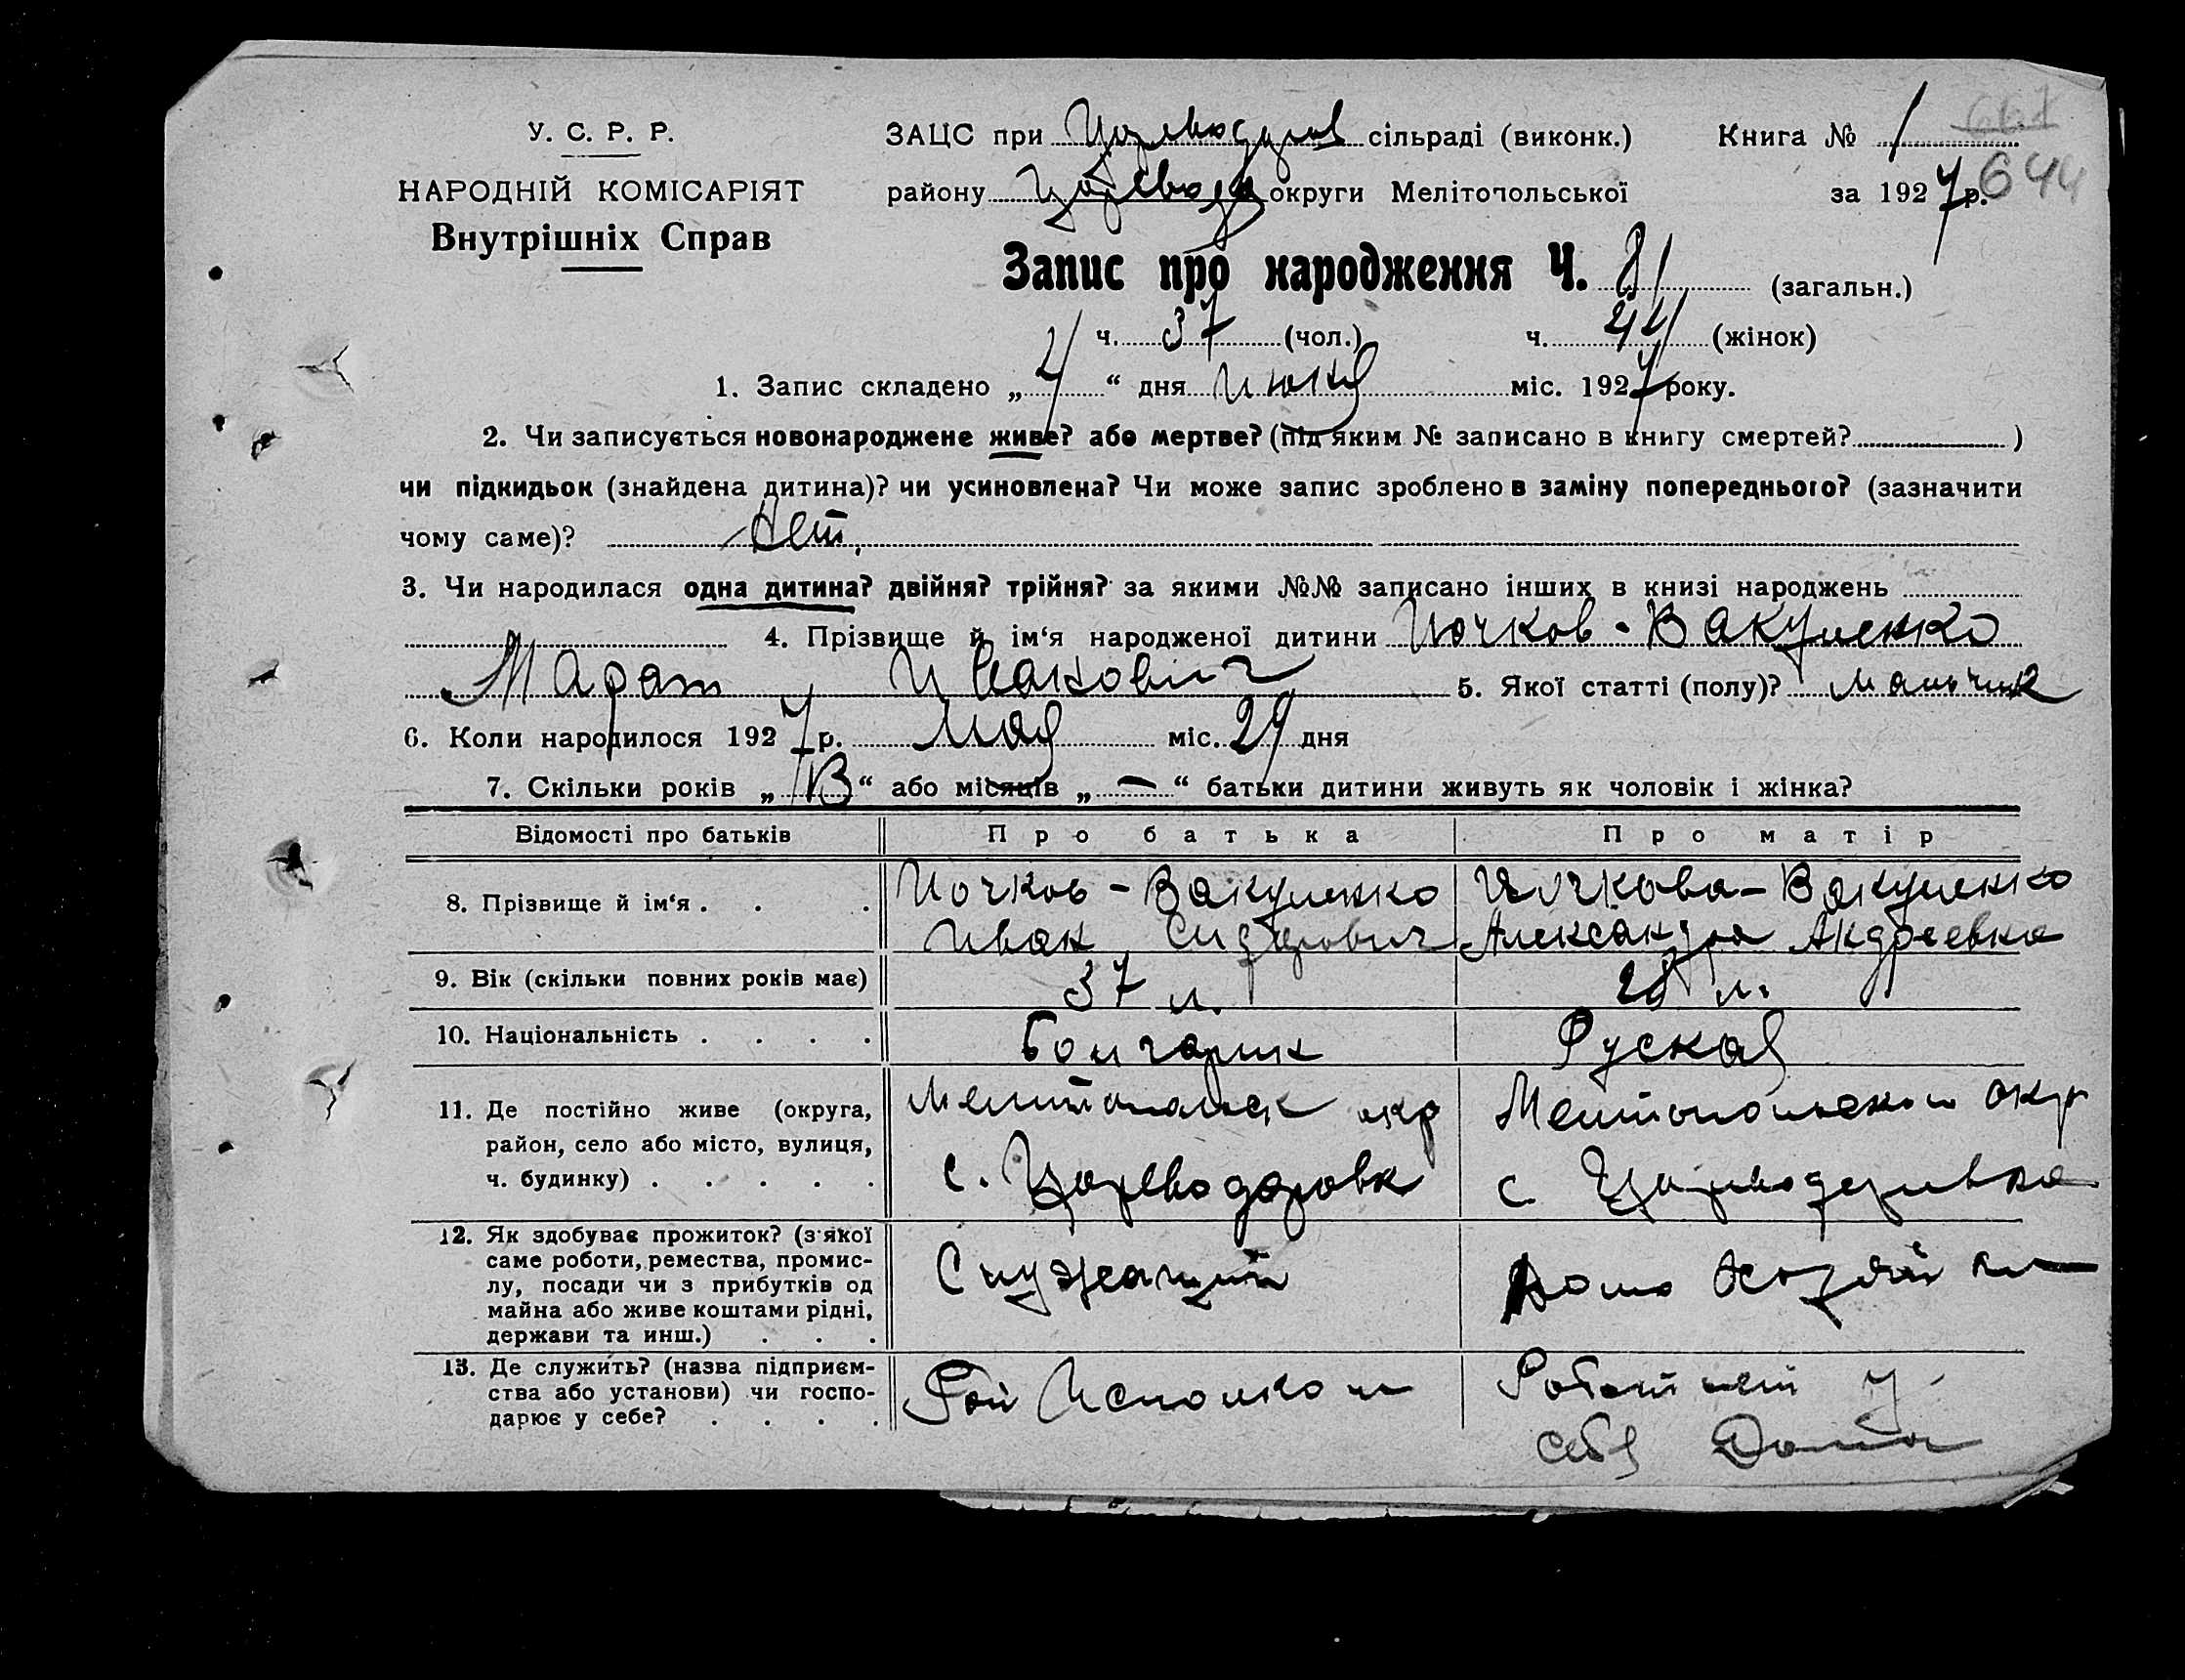 У. С. Р. Р.
НАРОДНІЙ КОМІСАРІЯТ
Внутрішніх Справ
ЗАЦС при Цареводаров сільраді (виконк.) Книга № 1 644
району округи Мелітопольської за 1927 р.
Запис про народження Ч. 81 (загальн.)
ч. 37 (чол.) ч. 44 (жінок)
1. Запис складено „4“ дня июня міс. 1927 року.
2. Чи записується новонароджене живе? або мертве? (під яким № записано в книгу смертей? )
чи підкидьок (знайдена дитина)? чи усиновлена? Чи може запис зроблено в заміну попереднього? (зазначити
чому саме)? Нет.
3. Чи народилася одна дитина? двійня? трійня? за якими №№ записано інших в книзі народжень
4. Прізвище й ім‘я народженої дитини Почков-Вакуленко
Марат Иванович 5. Якої статті (полу)? мальчик
6. Коли народилося 1927 р. мая міс. 29 дня
7. Скільки років „ “ або місяців „—“ батьки дитини живуть як чоловік і жінка?
Відомості про батьків Про батька Про матір
8. Прізвище й ім‘я . . . Почков-Вакуленко Почкова-Вакуленко
Иван Сидорович Александра Андреевна
9. Вік (скільки повних років має) 37 л. 28 л.
10. Національність . . . . Болгарин Руская
11. Де постійно живе (округа, район, село або місто, вулиця, ч. будинку) . . . . . Мелитопольск окр Мелитопольской окр
с. Цареводаровк с Цареводаровка
12. Як здобуває прожиток? (з якої саме роботи, ремества, промислу, посади чи з прибутків од майна або живе коштами рідні, держави та инш.) . . . Служащий Домо Хозяйка
13. Де служить? (назва підприємства або установи) чи господарює у себе? . . . . Рай Исполком Работает у
себя Дома